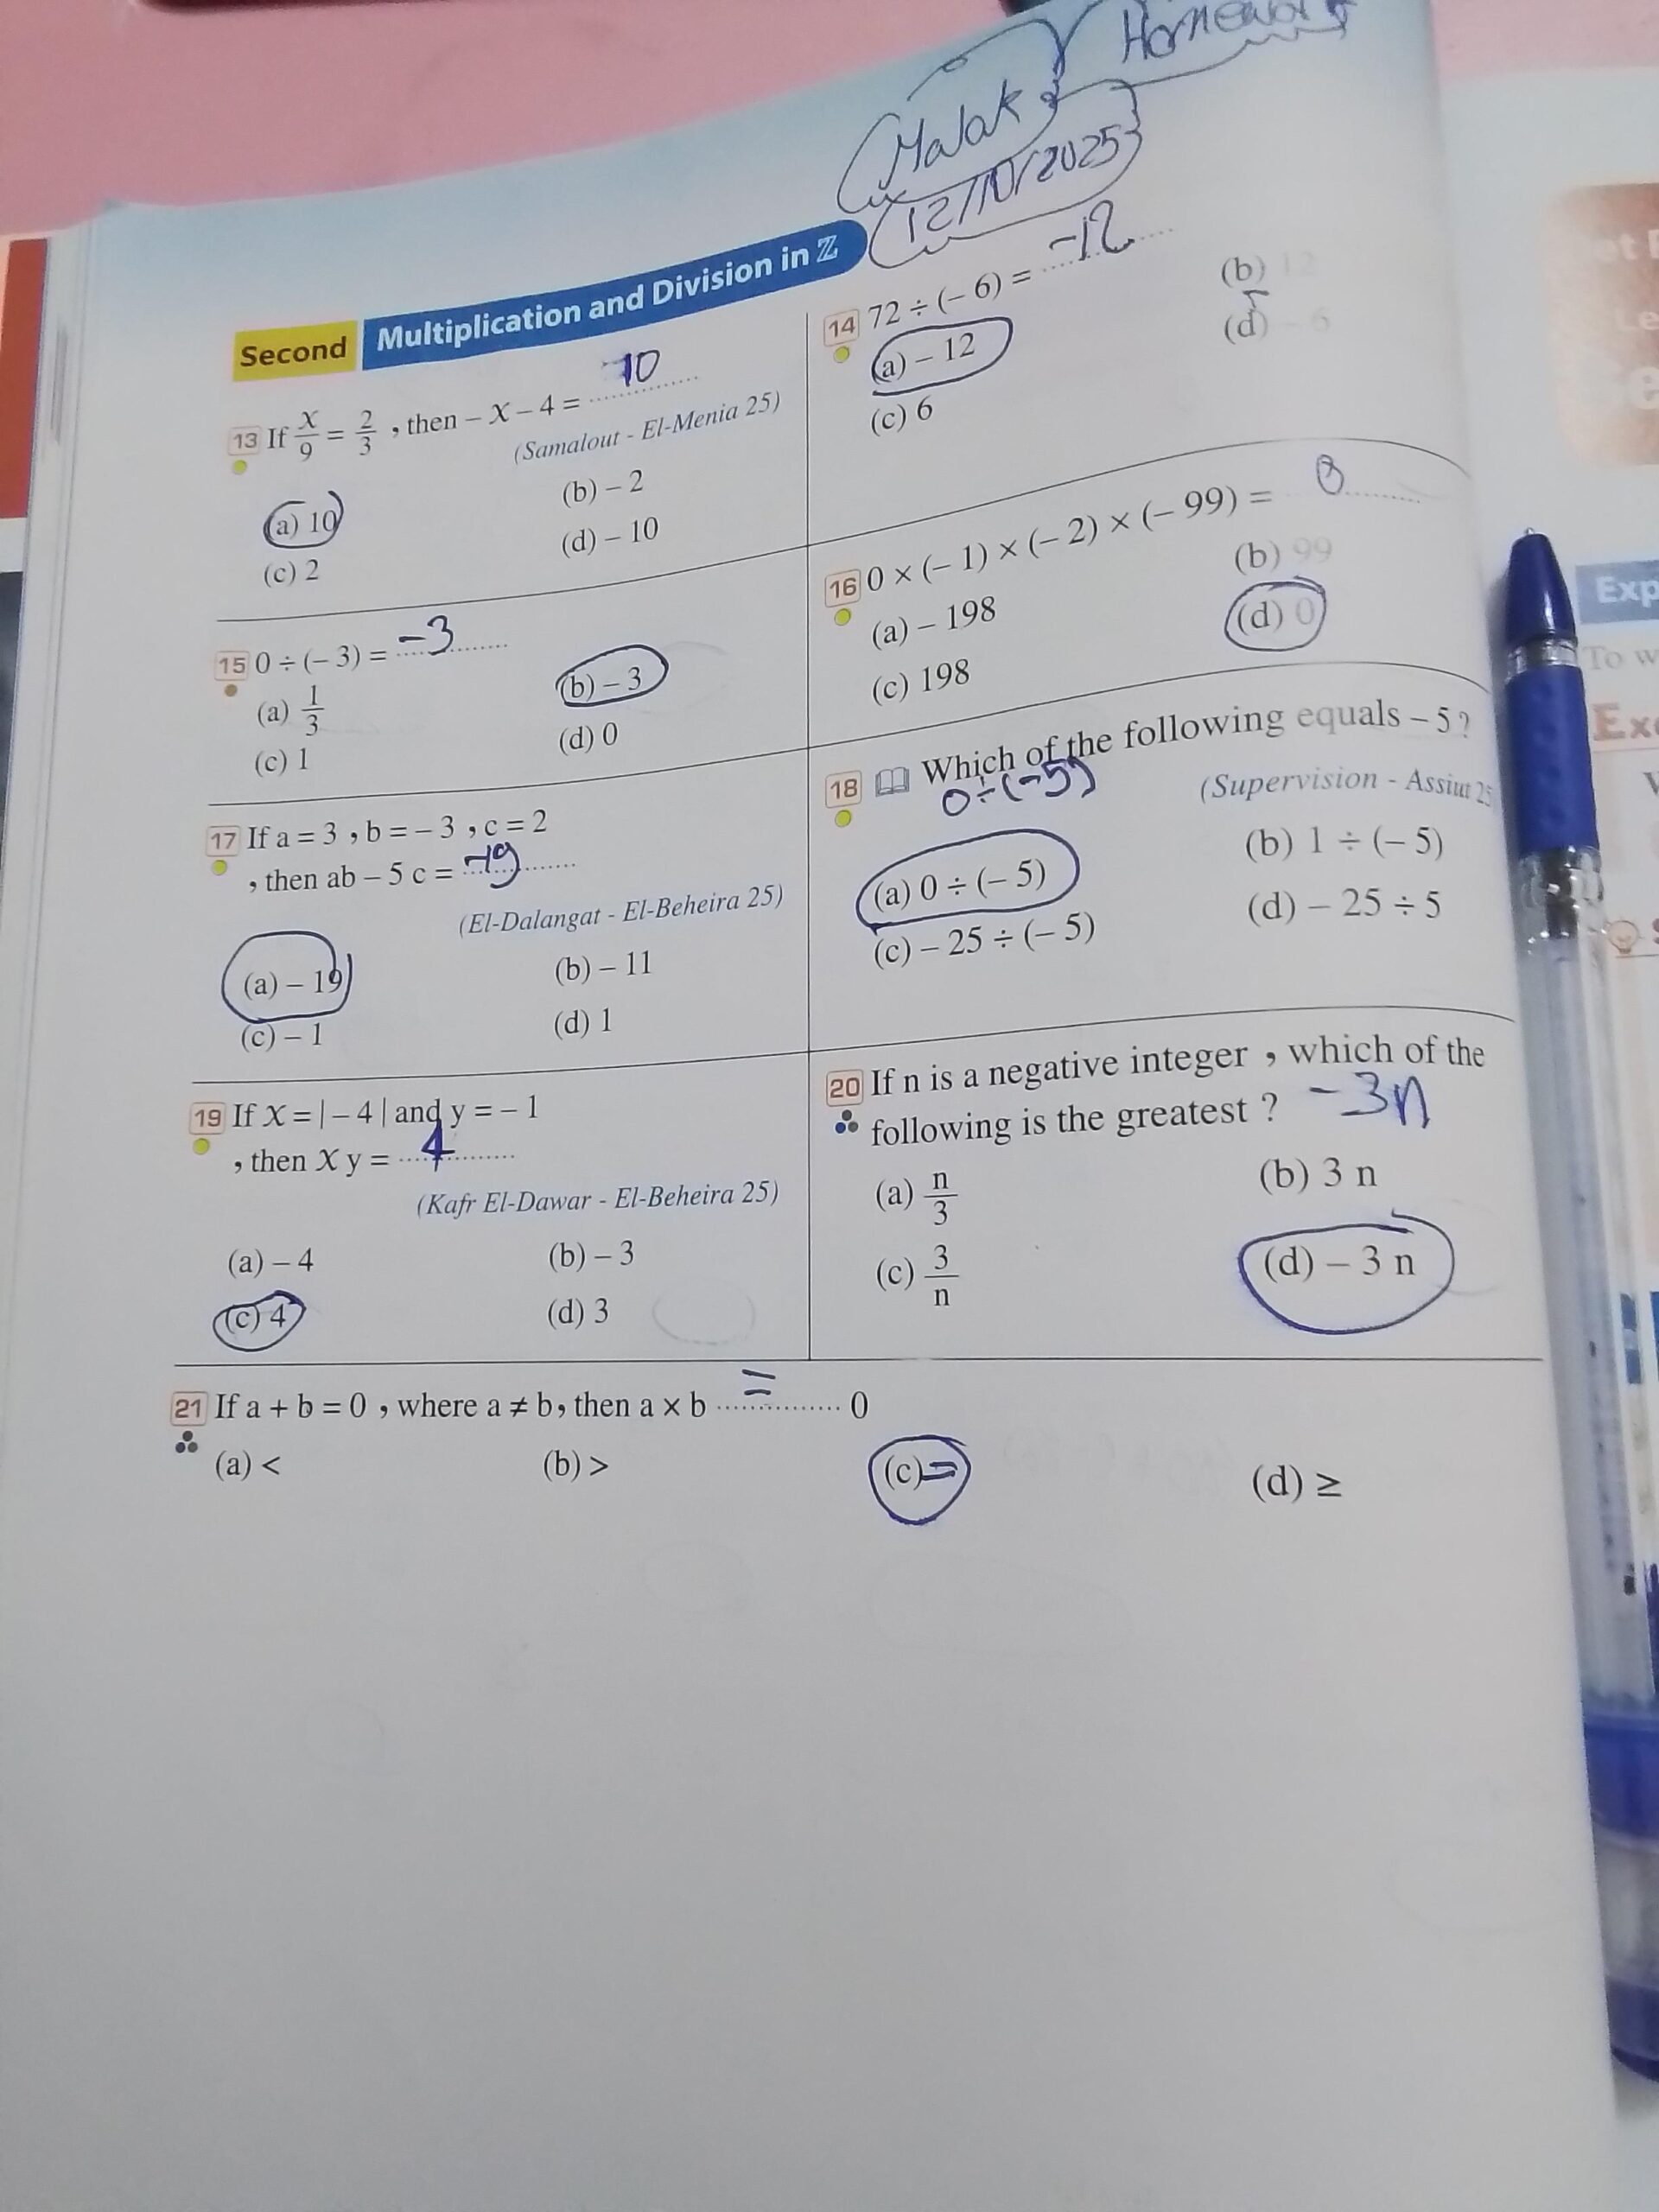 Homework
Malak
12/10/2025
Second Multiplication and Division in ℤ
13 If x/9 = 2/3 , then – x – 4 = 10
(Samalout - El-Menia 25)
(a) 10 (b) – 2
(c) 2 (d) – 10
14 72 ÷ (– 6) = -12
(a) – 12 (b) 12
(c) 6 (d) – 6
15 0 ÷ (– 3) = -3
(a) 1/3 (b) – 3
(c) 1 (d) 0
16 0 × (– 1) × (– 2) × (– 99) = 0
(a) – 198 (b) 99
(c) 198 (d) 0
17 If a = 3 , b = – 3 , c = 2
, then ab – 5 c = -19
(El-Dalangat - El-Beheira 25)
(a) – 19 (b) – 11
(c) – 1 (d) 1
18 Which of the following equals – 5 ?
0÷(-5)
(Supervision - Assiut 25
(a) 0 ÷ (– 5) (b) 1 ÷ (– 5)
(c) – 25 ÷ (– 5) (d) – 25 ÷ 5
19 If x = | – 4 | and y = – 1
, then x y = 4
(Kafr El-Dawar - El-Beheira 25)
(a) – 4 (b) – 3
(c) 4 (d) 3
20 If n is a negative integer , which of the
following is the greatest ? -3n
(a) n/3 (b) 3 n
(c) 3/n (d) – 3 n
21 If a + b = 0 , where a ≠ b, then a × b = 0
(a) < (b) > (c) = (d) ≥
Exp
To w